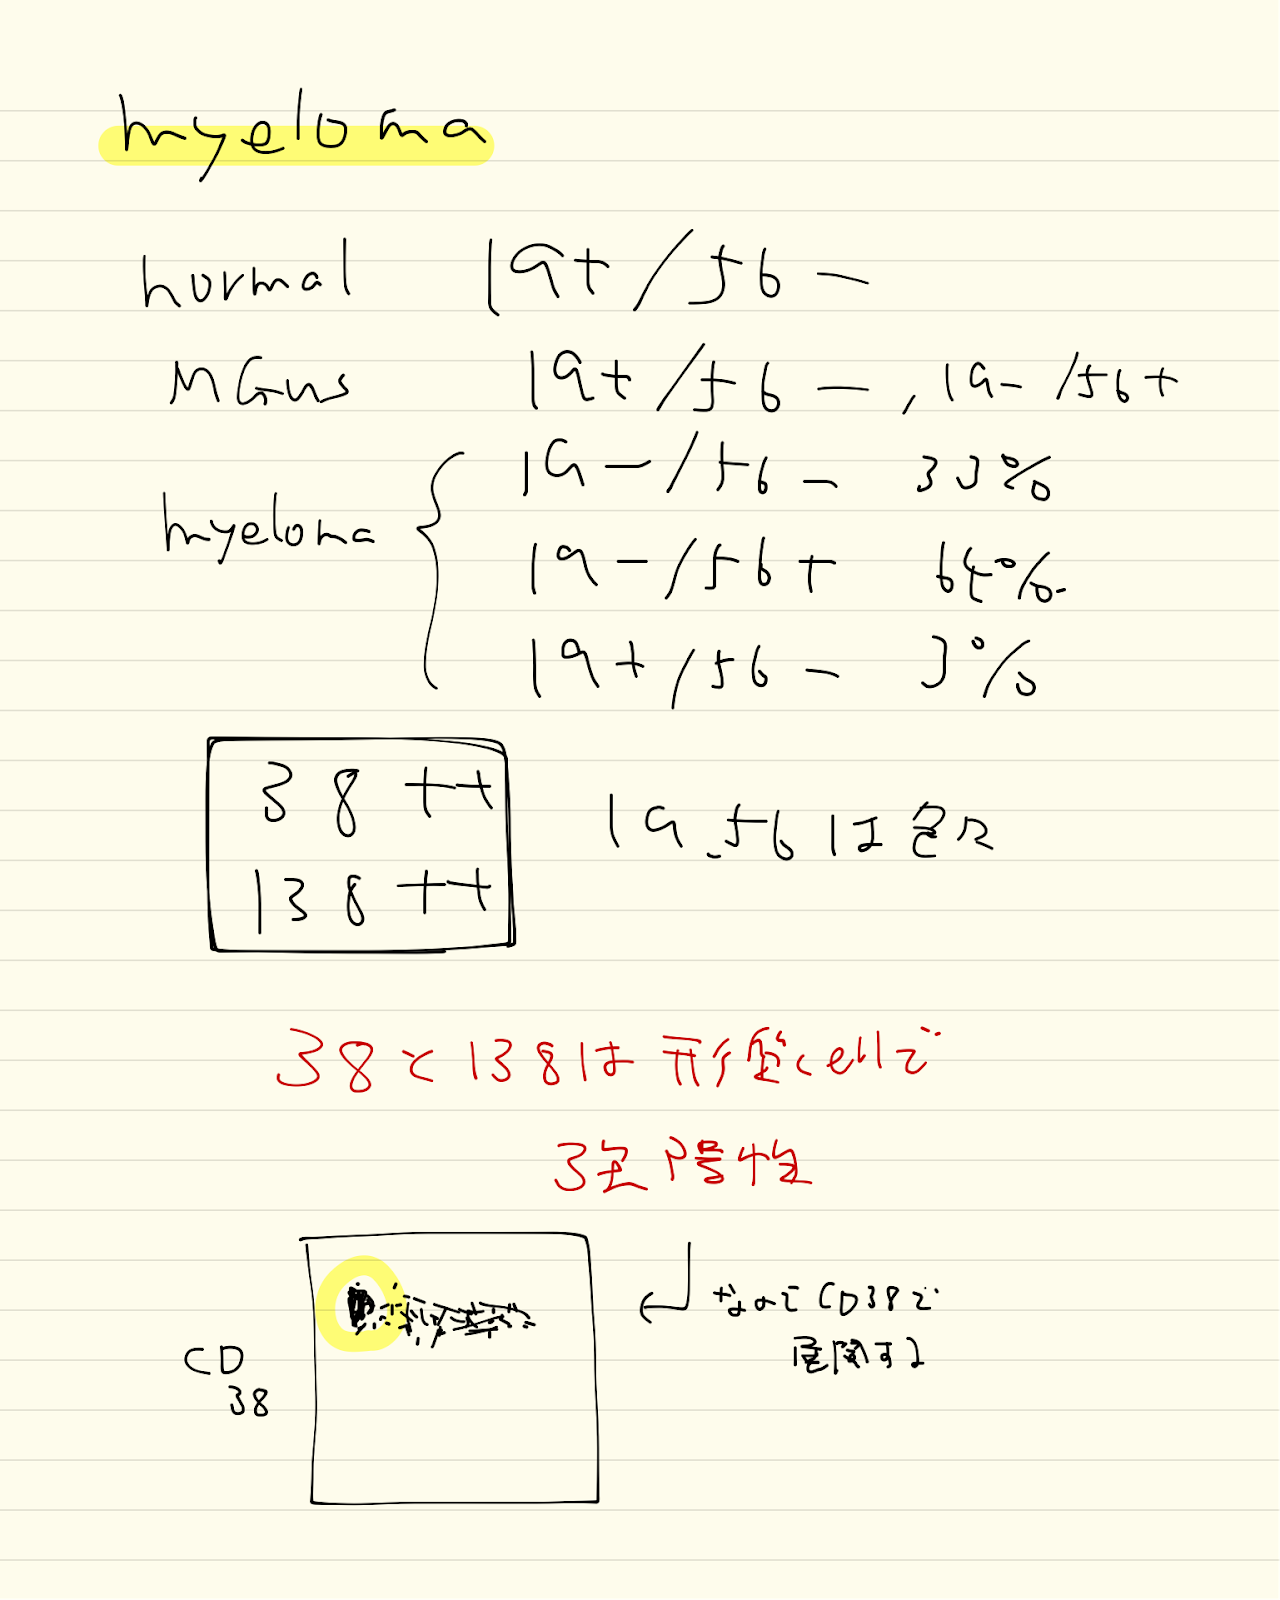 myeloma
normal 19+/56-
MGus 19+/56-, 19-/56+
myeloma { 19-/56- 33%
19-/56+ 64%
19+/56- 3%
38++
138++
19.56は色々
38と138は形質cellで
強陽性
なのでCD38で
展開する
CD
38